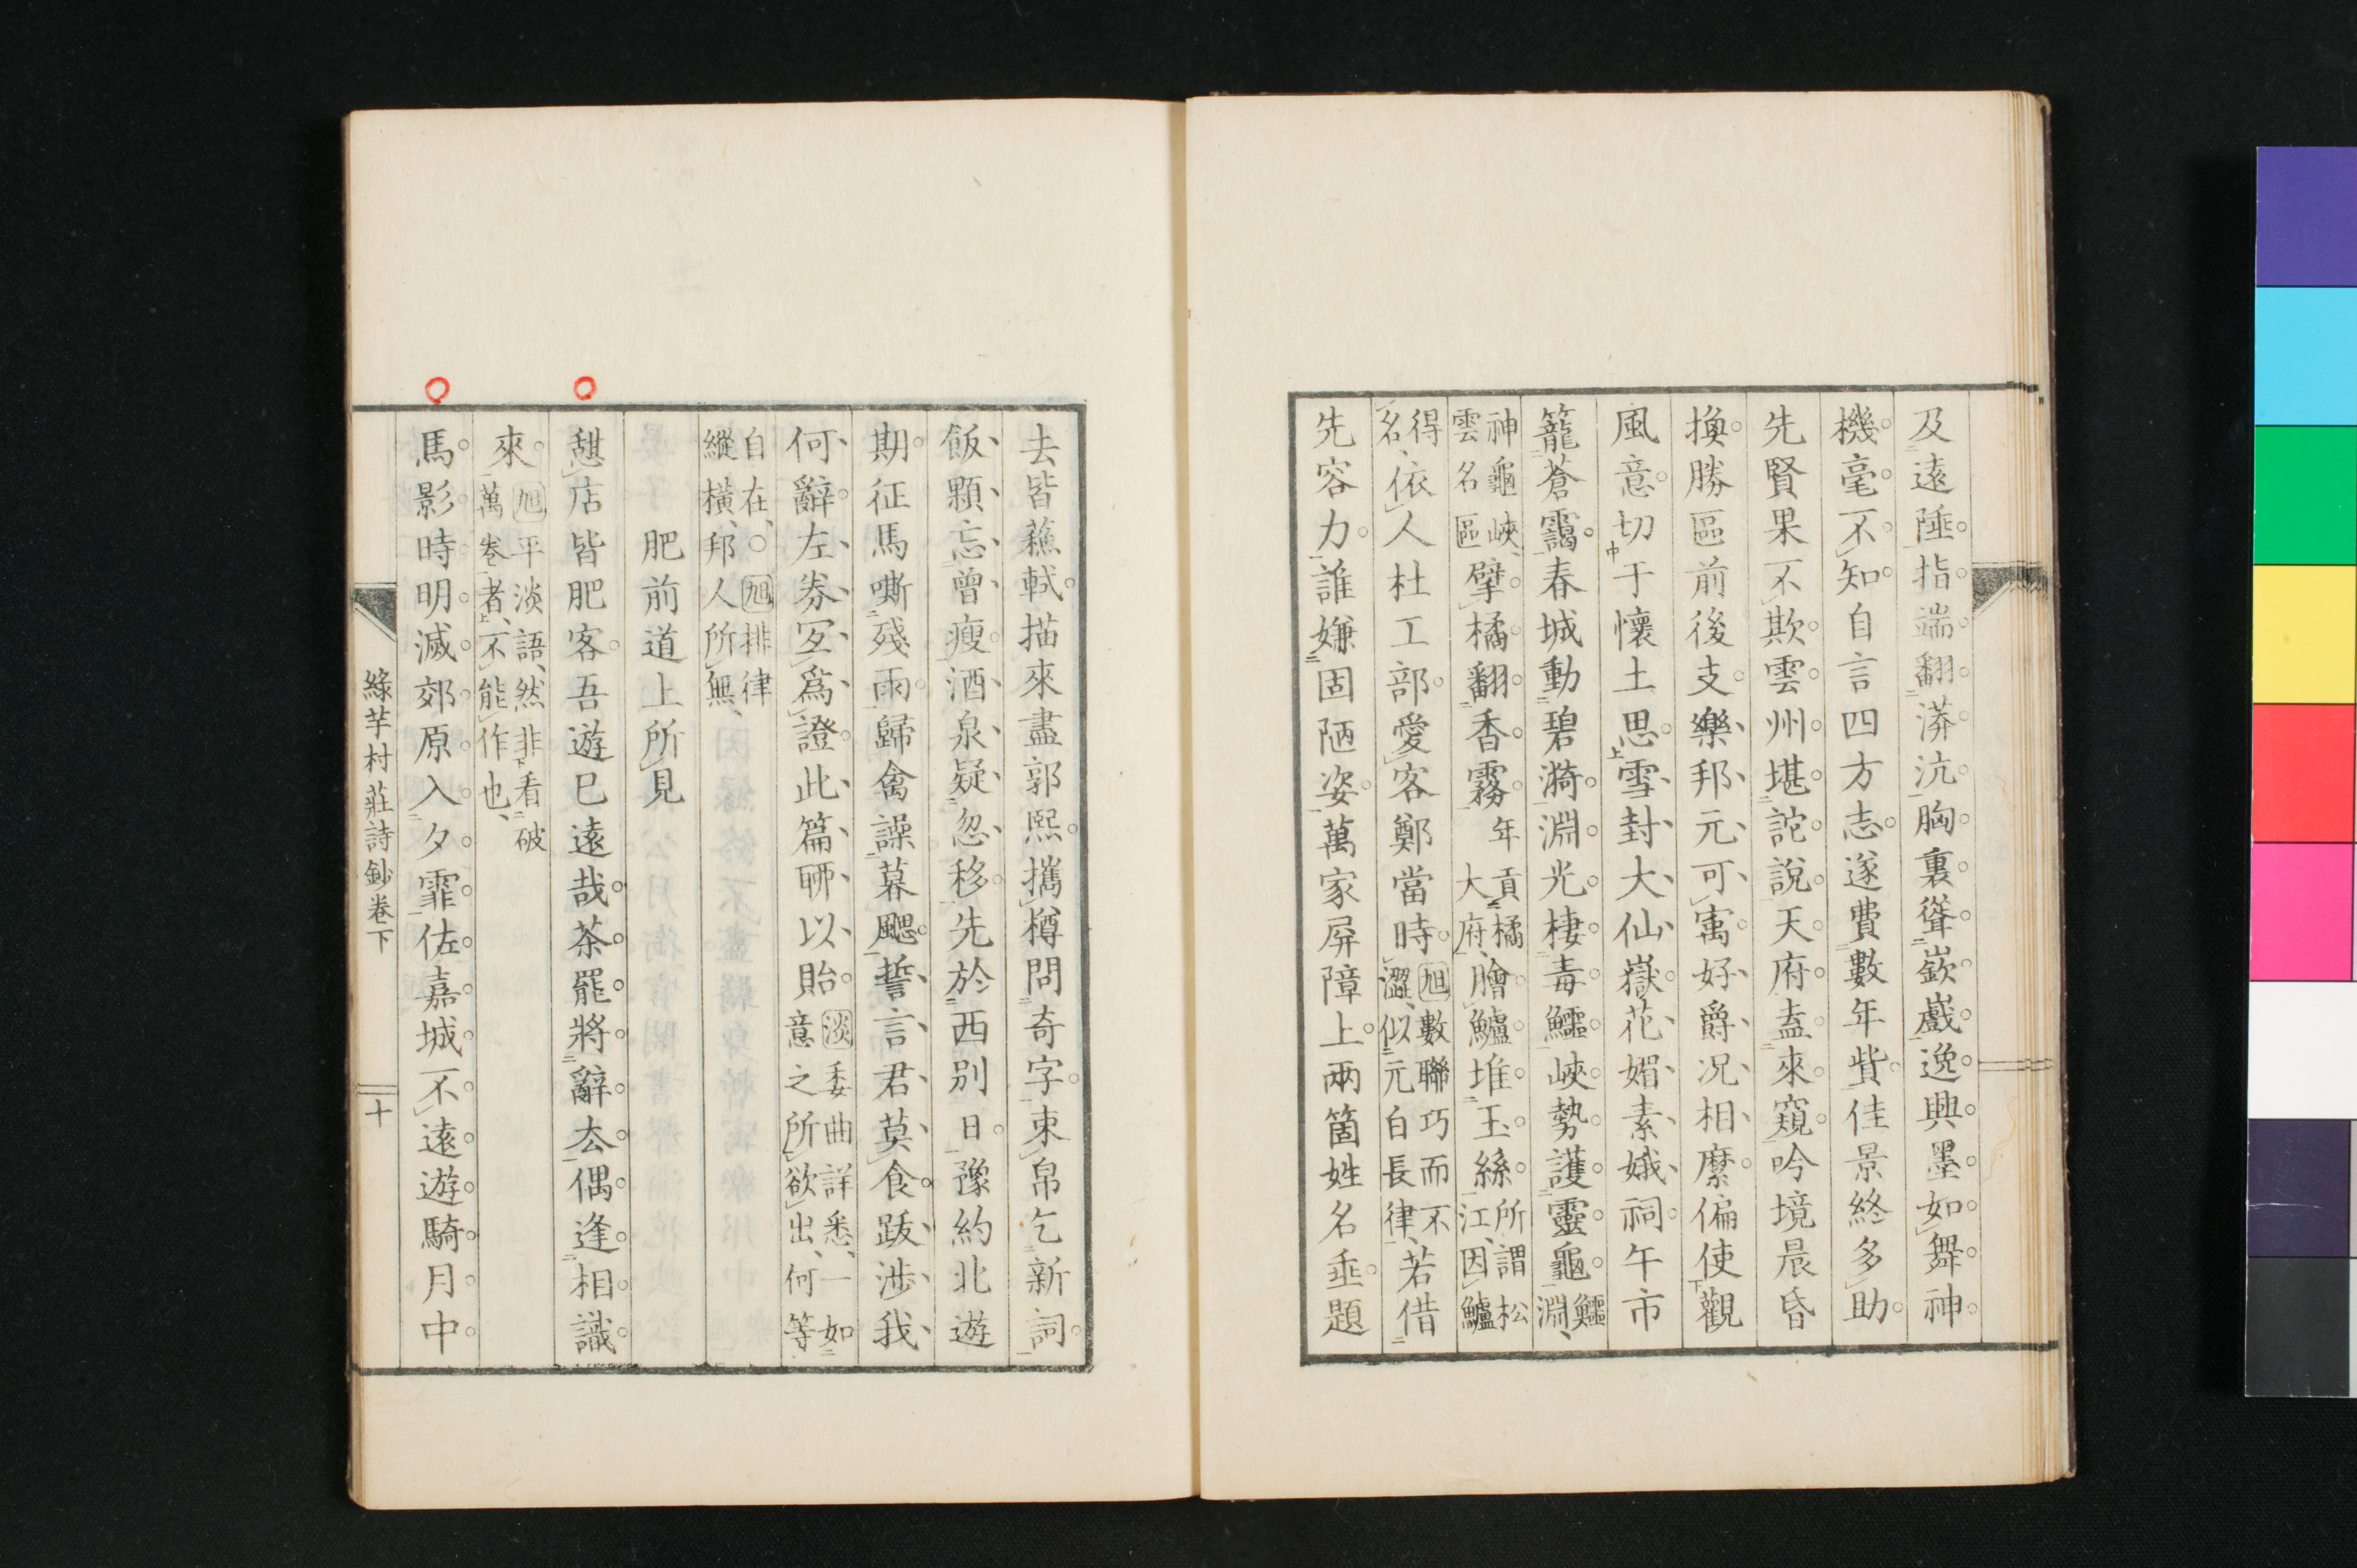 及遠陲指端翻漭沆胸裏聳嶔巇逸興墨如舞神
機毫不知自言四方志遂費數年貲佳景終多助
先賢果不欺雲州堪詑說天府盍來窺吟境晨昏
換勝區前後支樂邦元可寓好爵况相縻偏使觀
風意切于懷土思雪封大仙嶽花媚素娥祠午市
籠蒼靄春城動碧漪淵光棲毒鱷峽勢護靈龜鱷淵、
神龜峽、雲名名區擘橘翻香霧年貢橘大府、膾鱸堆玉絲所謂松江、因鱸
得名、依人杜工部愛客鄭當時旭數聯巧而不澀、似元白長律、若借
先容力誰嫌固陋姿萬家屏障上兩箇姓名垂題
去皆蘓軾描來盡郭熙攜樽問奇字束帛乞新詞
飯顆忘曾瘦酒泉疑忽移先於西別日豫約北遊
期征馬嘶殘雨歸禽譟暮颸誓言君莫食跋涉我
何辭左券宜爲證此篇聊以貽淡委曲詳悉、一如意之所欲出、何等
自在、○旭排律縱橫、邦人所無、
肥前道上所見
憇店皆肥客吾遊已遠哉茶罷將辭去偶逢相識
來旭平淡語、然非看破萬卷者、不能作也、
馬影時明滅郊原入夕霏佐嘉城不遠遊騎月中
綠芋村莊詩鈔卷下
十